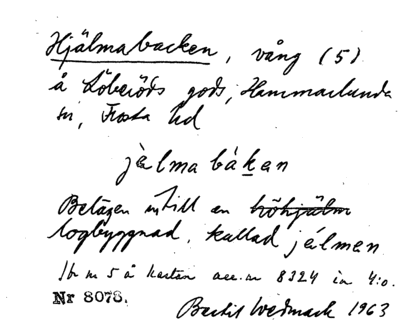 Hjälmabacken, vång (5)
å Löberöds gods, Hammarlunda
sn, Frosta hd
jàlma bákan
Belägen intill en höhjälm
logbyggnad, kallad jálmen
Jfr nr 5 å kartan acc.nr 8324 in 4:o.
Nr 8078.
Bertil Wedmark 1963